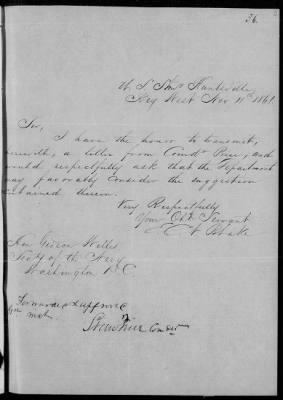 56.
U. S. Stmr Huntsville
Key West Nov 11th 1861
Sir,
I have the honor to transmit,
herewith, a letter from Comdr Rice, and
would respectfully ask that the Department
may favorably consider the suggestion
contained therein.
Very Respectfully
Your Obt. Servant
Hon Gideon Welles
Secty of the Navy
Washington D.C.
Forwarded & approved